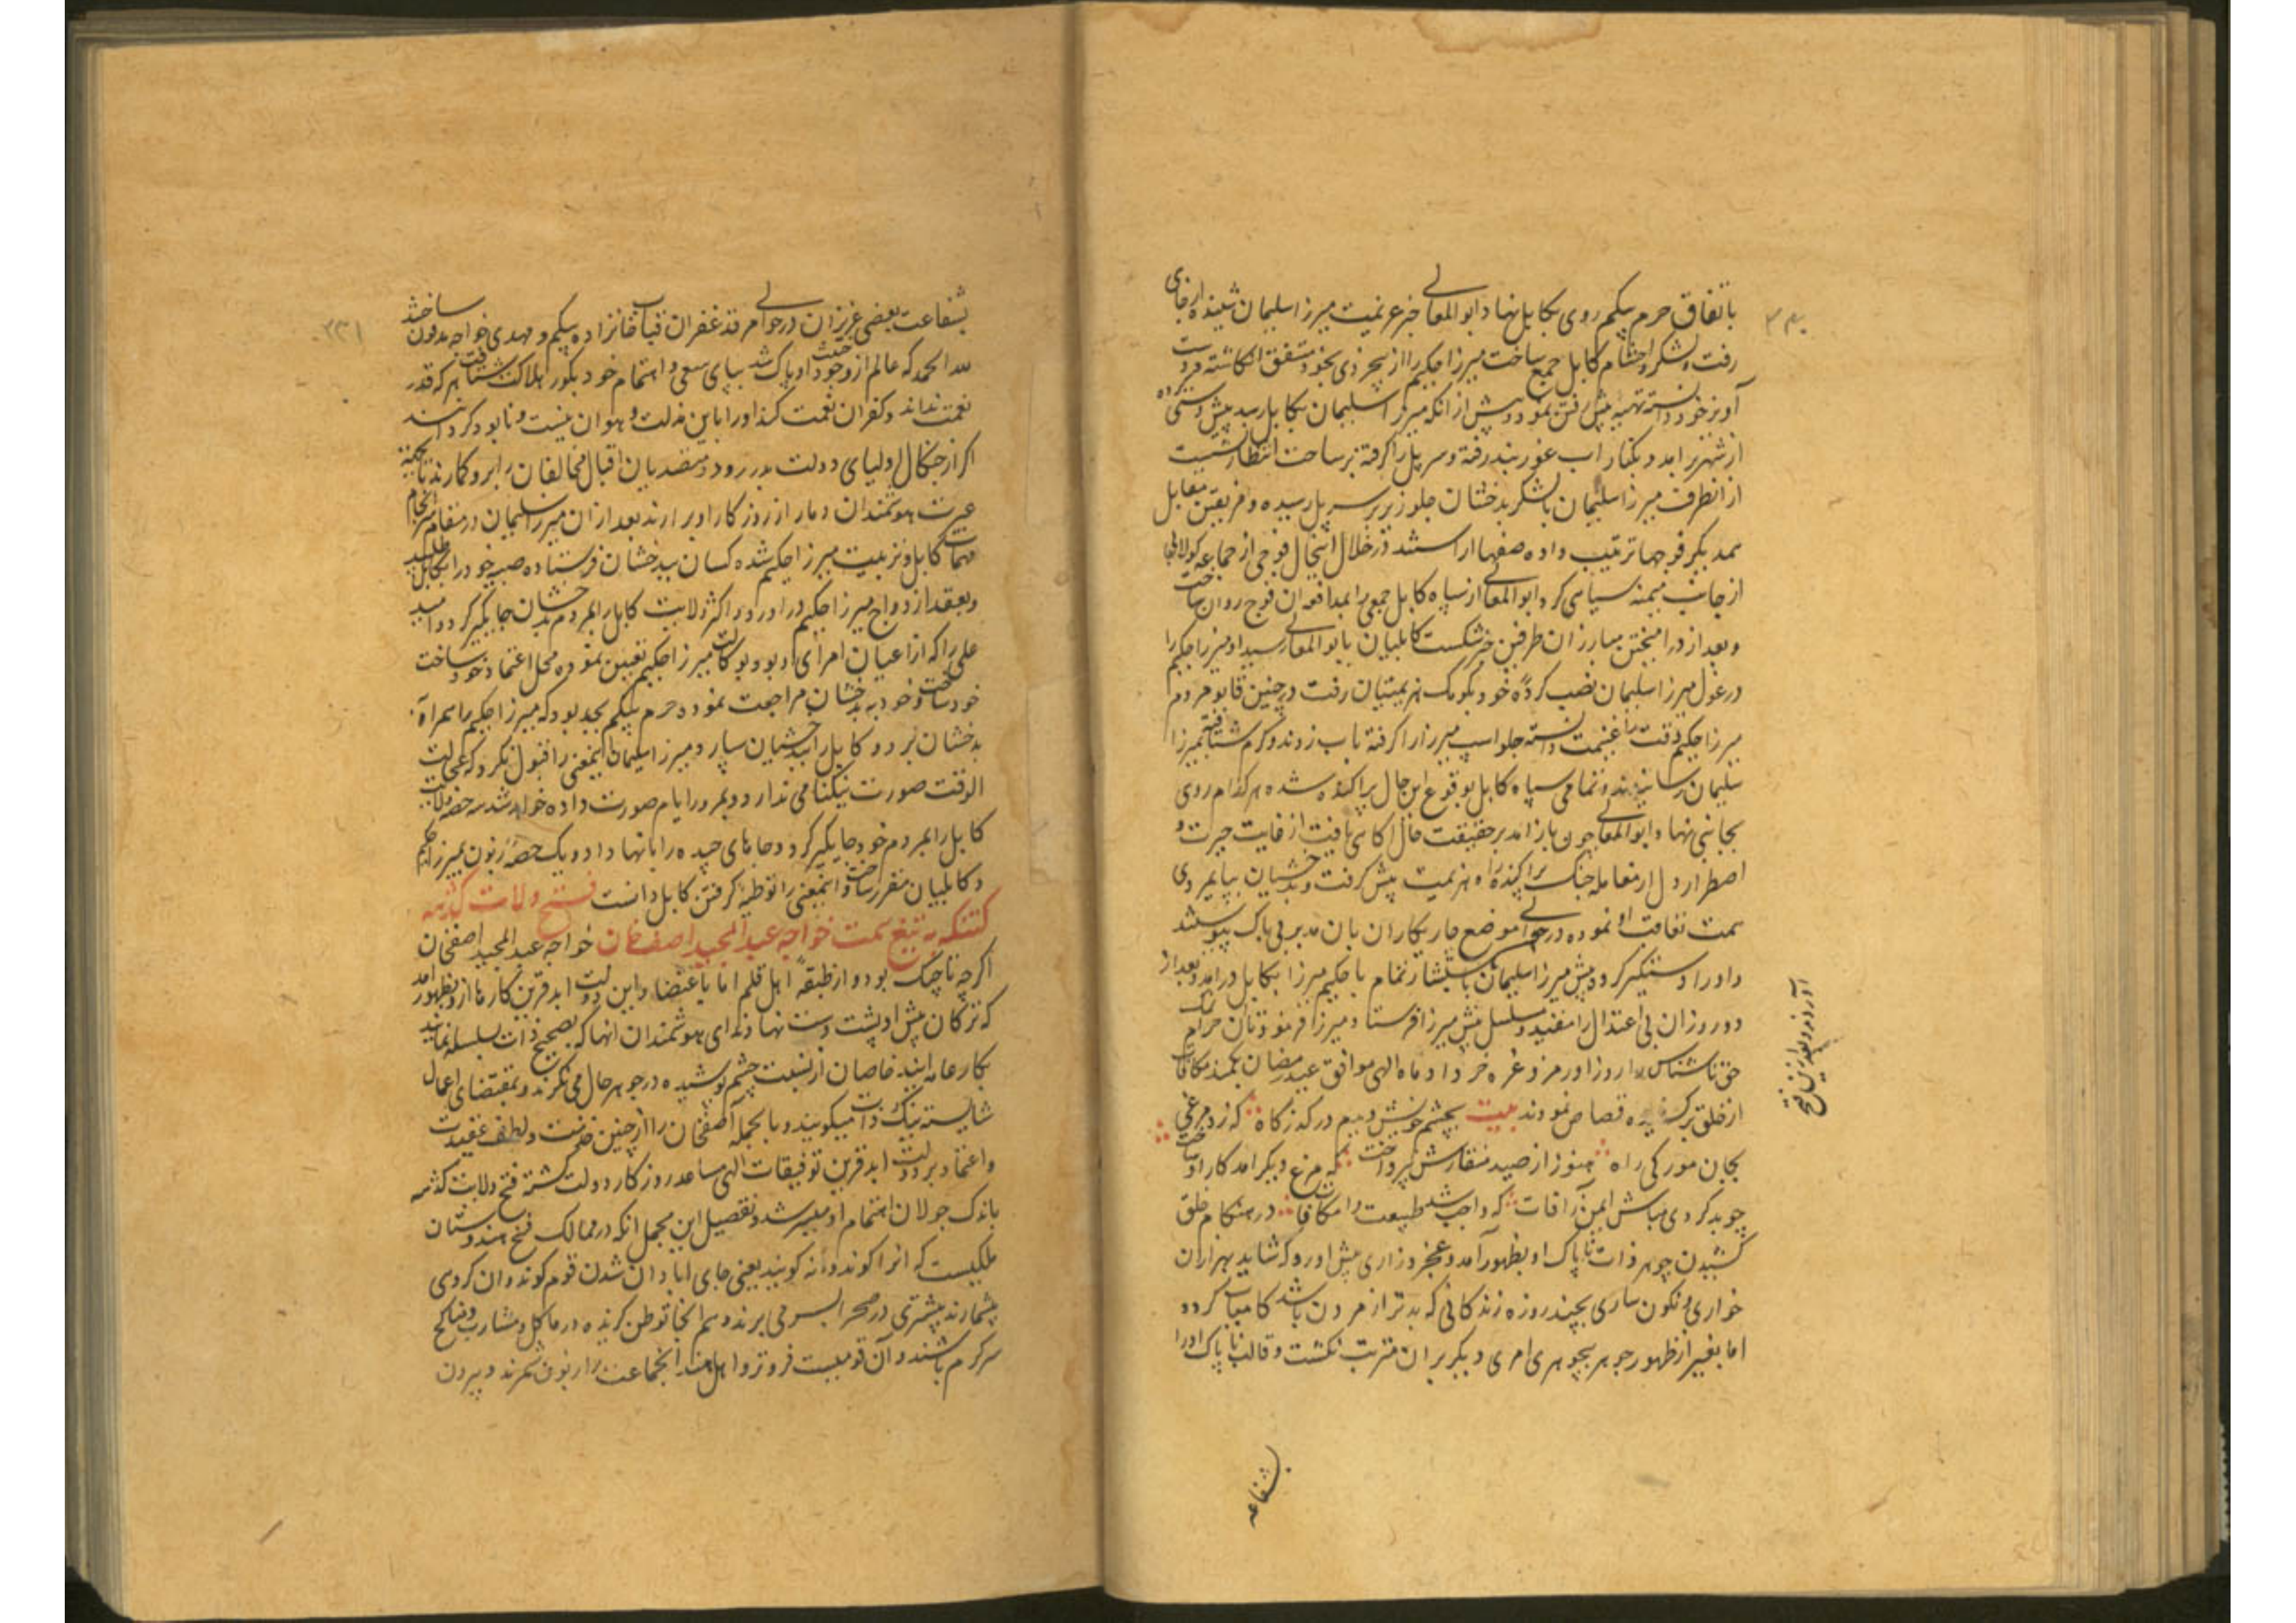 ۳۳۰
باتفاق حرم بیکم روی بکابل نهاد و ابوالمعالی خبر عزیمت میرزا سلیمان شنیده از جای
رفت و لشکر و احشام کابل جمع ساخت میرزا حکیم را از بیخردی بخود متفق انکاشته
آویز خود دانسته تهیه پیش رفتن نمود و پیش از انکه میرزا سلیمان بکابل رسد پیش دستی کرده
از شهر برامد و بکنار اب غوربند رفته و سر پل را کرفته بر ساحت انتظار نشست
از انطرف میرزا سلیمان با لشکر بدخشان جلوریز بر سر پل رسیده و فریقین مقابل
همدیکر فوجها ترتیب داده صفها اراستند در خلال اینحال فوجی از جماعه کولابی
از جانب میمنه سیاهی کرد ابوالمعالی از سپاه کابل جمعی را بمدافعه ان فوج روان ساخت
و بعد از درامیختن مبارزان طرفین خبر شکست کابلیان بابوالمعالی رسید او میرزا حکیم را
در غول میرزا سلیمان نصب کرده خود بکومک هزیمتیان رفت در چنین قابو مردم
میرزا حکیم وقت را غنیمت دانسته جلو اسپ میرزا را کرفته باب زدند و کرم شتافته میرزا
سلیمان رسانیدند و تمامی سپاه کابل بوقوع این حال پراکنده شده هر کدام روی
بجانبی نهاد و ابوالمعالی چون بازامد بر حقیقت حال اکاهی یافت از غایت حیرت و
اضطرار دل از معامله جنک پراکنده راه هزیمت پیش کرفت و بدخشیان بپایمردی
همت تعاقب او نموده در حوالی موضع چاریکاران بان مدبر بی باک پیوستند
و او را دستکیر کرده پیش میرزا سلیمان با حکیم میرزا بکابل درامد و بعد از
دو روز ان بی اعتدال را مقید و مسلسل پیش میرزا فرستاد و میرزا فرمود تا ان نمک حرام
حق ناشناس را روز اورمزد غره خرداد ماه الهی موافق عید رمضان بکمند مکافات
از خلق برکشیده قصاص نمودند بیت بچشم خویش دیدم در کذرکاه که زد مرغی
بجان مورکی راه هنوز از صید منقارش نپرداخت که مرغ دیکر امد کار او ساخت
چو بد کردی مباش ایمن ز آفات که واجب شد طبیعت را مکافات در هنکام خلق
کشیدن جوهر ذات ناپاک او بظهور آمد و عجز و زاری پیش اورد که شاید بهزاران
خواری و نکون ساری بچند روزه زندکانی که بدتر از مردن باشد کامیاب کردد
اما بغیر از ظهور جوهر بیجوهری امری دیکر بران مترتب نکشت و قالب ناپاک او را
بشفاعه
۳۳۱
بشفاعت بعضی عزیزان در حوالی مرقد غفران قباب خانزاده بیکم و مهدی خواجه مدفون ساختند
لله الحمد که عالم از خبث وجود او پاک شد بپای سعی و اهتمام خود بکور هلاکت شتافت هر که قدر
نعمت نداند و کفران نعمت کند او را باین مذلت و هوان نیست و نابود کردانند
اکر از چنکال اولیای دولت بدر رود متصدیان اقبال مخالفان را برو کمارند تا بجهة
عبرت هوشمندان دمار از روزکار او برارند بعد از ان میرزا سلیمان در مقام سرانجام
مهمات کابل و تربیت میرزا حکیم شده کسان ببدخشان فرستاده صبیه خود را بکابل طلبید
و بعقد ازدواج میرزا حکیم دراورد و اکثر ولایت کابل را بمردم بدخشان جایکیر کرد و امید
علی را که از اعیان امرای او بود بوکالت میرزا حکیم تعیین نموده محل اعتماد خود ساخت
خود ساخت و خود به بدخشان مراجعت نمود حرم بیکم بجد بود که میرزا حکیم را همراه
بدخشان برد و کابل را ببدخشیان سپارد میرزا سلیمان اینمعنی را قبول نکرد که عجالت
الوقت صورت نیکنامی ندارد و بمرور ایام صورت داده خواهد شد سه حصه ولایت
کابل را بمردم خود جایکیر کرد و جاهای چیده را بانها داد و یک حصه زبون بمیرزا حکیم
و کابلیان مقرر ساخت و اینمعنی را توطیه کرفتن کابل دانست فتح ولایت کدهه
کتنکه به تیغ همت خواجه عبدالمجید اصفخان خواجه عبدالمجید اصفخان
اکرچه تاجیک بود و از طبقه اهل قلم اما باعتضاد این دولت ابدقرین کارها ازو بظهور امد
که ترکان پیش او پشت دست نهادند ای هوشمندان انها که بصحیح ذات بسلسله نمایند
بکار عامه ایند خاصان از نسبت چشم پوشیده در جوهر حال می نکرند و بمقتضای اعمال
شایسته نیک ذات میکویند و بالجمله آصفخان را از چنین خدمت و لطف عقیدت
و اعتماد بر دولت ابدقرین توفیقات الهی مساعد روزکار دولت کشته فتح ولایت کدهه
باندک جولان اهتمام او میسر شد و تفصیل این مجمل انکه در ممالک فتح هندوستان
ملکیست که انرا کوندوانه کویند یعنی جای ابادان شدن قوم کوند و ان کروهی
بیشمارند بیشتری در صحرا بسر می برند و هم انجا توطن کزیده در ماکل و مشارب و مناکح
سرکرم باشند و آن قومیست فروتر و اهل هند انجماعت را زبون شمرند و بیرون